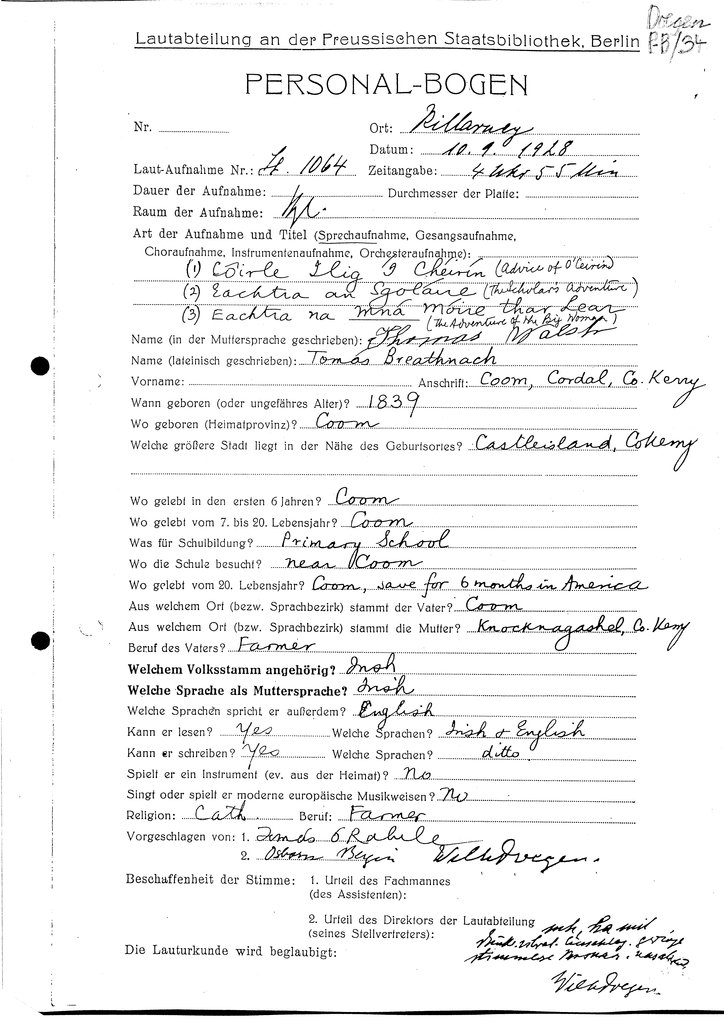 Doegen
Lautabteilung an der Preussischen Staatsbibliothek, Berlin
PERSONAL-BOGEN
Nr.
Ort: Killarney
Datum: 10. 9. 1928
Laut-Aufnahme Nr.: 1064 Zeitangabe: 4 Uhr 55 Min
Dauer der Aufnahme: Durchmesser der Platte:
Raum der Aufnahme:
Art der Aufnahme und Titel (Sprechaufnahme, Gesangsaufnahme,
Choraufnahme, Instrumentenaufnahme, Orchesteraufnahme):
(1) Cōirle Ilig Í Chéirín (Advice of O'Ceirin)
(2) Eachtra an Sgoláire (The Scholar's Adventure)
(3) Eachtra na mná móire thar Lear
(The Adventure of the Big Woman)
Name (in der Muttersprache geschrieben): Thomas Walsh
Name (lateinisch geschrieben): Tomás Breathnach
Vorname: Anschrift: Coom, Cordal, Co. Kerry
Wann geboren (oder ungefähres Alter)? 1839
Wo geboren (Heimatprovinz)? Coom
Welche größere Stadt liegt in der Nähe des Geburtsortes? Castleisland, Co Kerry
Wo gelebt in den ersten 6 Jahren? Coom
Wo gelebt vom 7. bis 20. Lebensjahr? Coom
Was für Schulbildung? Primary School
Wo die Schule besucht? near Coom
Wo gelebt vom 20. Lebensjahr? Coom, save for 6 months in America
Aus welchem Ort (bezw. Sprachbezirk) stammt der Vater? Coom
Aus welchem Ort (bzw. Sprachbezirk) stammt die Mutter? Knocknagashel, Co. Kerry
Beruf des Vaters? Farmer
Welchem Volksstamm angehörig? Irish
Welche Sprache als Muttersprache? Irish
Welche Sprachen spricht er außerdem? English
Kann er lesen? Yes Welche Sprachen? Irish & English
Kann er schreiben? Yes Welche Sprachen? ditto
Spielt er ein Instrument (ev. aus der Heimat)? No
Singt oder spielt er moderne europäische Musikweisen? No
Religion: Cath. Beruf: Farmer
Vorgeschlagen von: 1.
2. Osborn Bergin Wilh Doegen.
Beschaffenheit der Stimme: 1. Urteil des Fachmannes
(des Assistenten):
2. Urteil des Direktors der Lautabteilung
(seines Stellvertreters):
Die Lauturkunde wird beglaubigt:
Wilh Doegen.